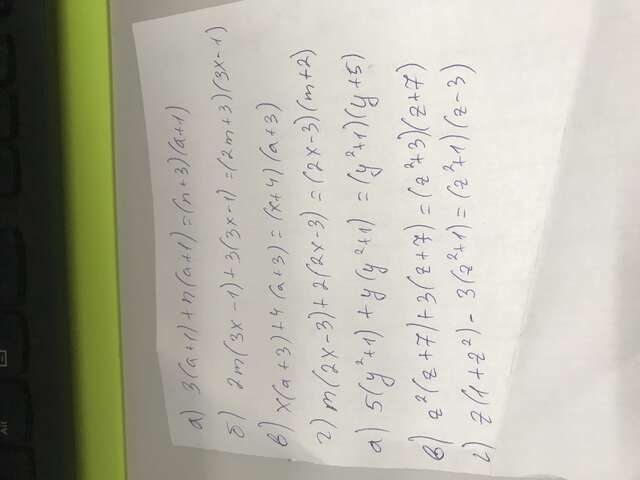 Alt
а) 3(a+1)+n(a+1)=(n+3)(a+1)
б) 2m(3x-1)+3(3x-1)=(2m+3)(3x-1)
в) x(a+3)+4(a+3)=(x+4)(a+3)
г) m(2x-3)+2(2x-3)=(2x-3)(m+2)
а) 5(y²+1)+y(y²+1)=(y²+1)(y+5)
в) z²(z+7)+3(z+7)=(z²+3)(z+7)
г) z(1+z²)-3(z²+1)=(z²+1)(z-3)